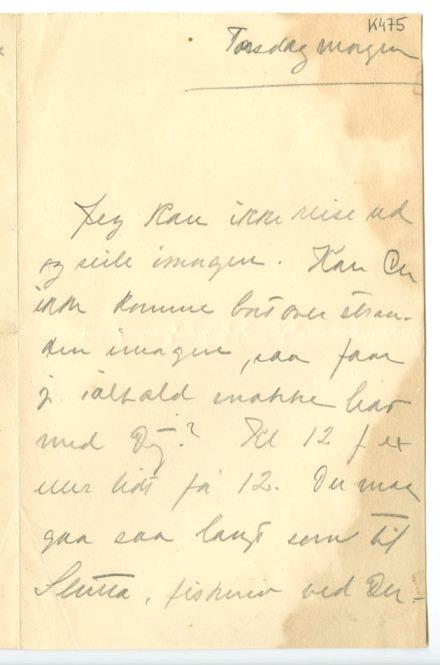 K475
Torsdag morgen
Jeg kan ikke reise ud
og seile imorgen. Kan Du
ikke komme bort over stran-
den imorgen, saa faar
j ialtfald snakke lidt
med Dig? Kl 12 f ex
eller lidt før 12. Du maa
gaa saa langt som til
ved